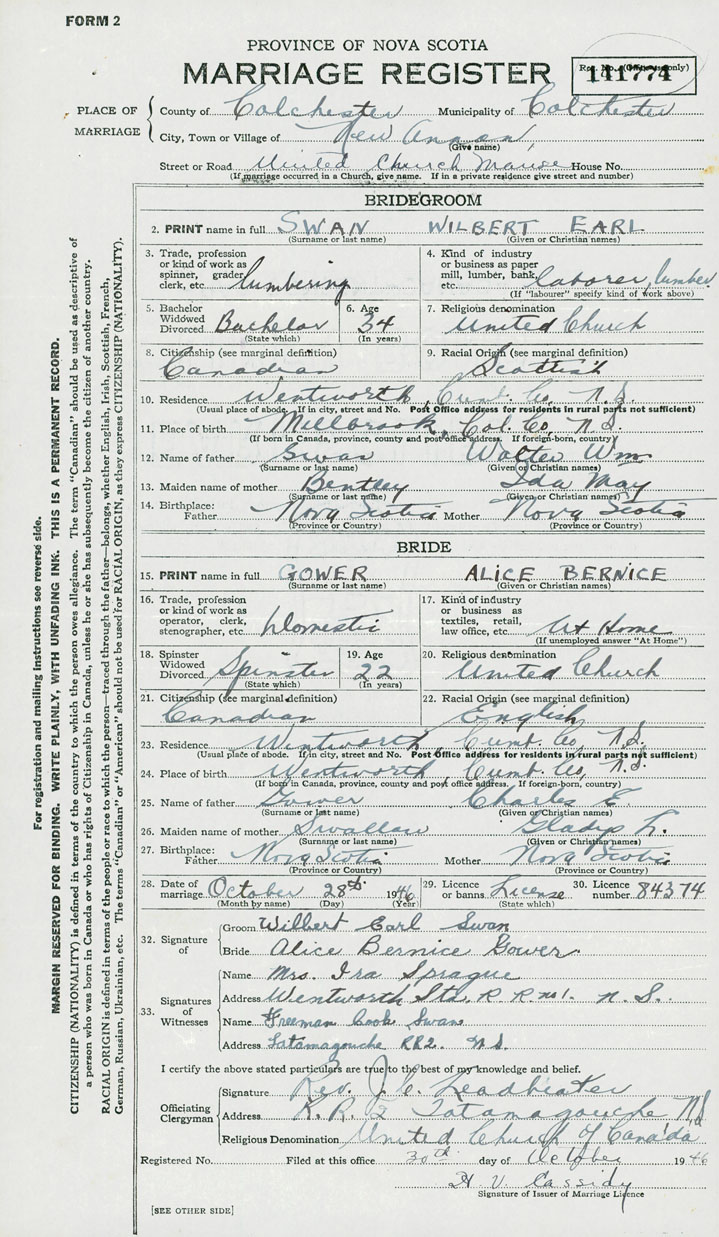 FORM 2
PROVINCE OF NOVA SCOTIA
MARRIAGE REGISTER
141774
PLACE OF MARRIAGE
County of Colchester Municipality of Colchester
City, Town or Village of New Annan,
(Give name)
Street or Road United Church Manse House No.
(If marriage occurred in a Church, give name. If in a private residence give street and number)
BRIDEGROOM
2. PRINT name in full SWAN WILBERT EARL
(Surname or last name) (Given or Christian names)
3. Trade, profession or kind of work as spinner, grader clerk, etc. lumbering
4. Kind of industry or business as paper mill, lumber, bank, etc. laborer, lumber
(If "labourer" specify kind of work above)
5. Bachelor Widowed Divorced Bachelor (State which)
6. Age 34 (In years)
7. Religious denomination United Church
8. Citizenship (see marginal definition) Canadian
9. Racial Origin (see marginal definition) Scottish
10. Residence Wentworth, Cumb. Co, N.S.
(Usual place of abode. If in city, street and No. Post Office address for residents in rural parts not sufficient)
11. Place of birth Millbrook, Col. Co, N.S.
(If born in Canada, province, county and post office address. If foreign-born, country)
12. Name of father Swan Walter Wm.
(Surname or last name) (Given or Christian names)
13. Maiden name of mother Bentley Ida May
(Surname or last name) (Given or Christian names)
14. Birthplace: Father Nova Scotia Mother Nova Scotia
(Province or Country) (Province or Country)
BRIDE
15. PRINT name in full GOWER ALICE BERNICE
(Surname or last name) (Given or Christian names)
16. Trade, profession or kind of work as operator, clerk, stenographer, etc. Domestic
17. Kind of industry or business as textiles, retail, law office, etc. At Home
(If unemployed answer "At Home")
18. Spinster Widowed Divorced Spinster (State which)
19. Age 22 (In years)
20. Religious denomination United Church
21. Citizenship (see marginal definition) Canadian
22. Racial Origin (see marginal definition) English
23. Residence Wentworth, Cumb. Co, N.S.
(Usual place of abode. If in city, street and No. Post Office address for residents in rural parts not sufficient)
24. Place of birth Wentworth, Cumb. Co, N.S.
(If born in Canada, province, county and post office address. If foreign-born, country)
25. Name of father Gower Charles E
(Surname or last name) (Given or Christian names)
26. Maiden name of mother Swallow Gladys L.
(Surname or last name) (Given or Christian names)
27. Birthplace: Father Nova Scotia Mother Nova Scotia
(Province or Country) (Province or Country)
28. Date of marriage October 28th 1946
(Month by name) (Day) (Year)
29. Licence or banns License (State which)
30. Licence number 84374
32. Signature of
Groom Wilbert Earl Swan
Bride Alice Bernice Gower
33. Signatures of Witnesses
Name Mrs. Ira Sprague
Address Wentworth Sta. R R no 1. N. S.
Name Freeman Cook Swan
Address Tatamagouche RR2. N S.
I certify the above stated particulars are true to the best of my knowledge and belief.
Officiating Clergyman
Signature Rev. J. C. Leadbeater
Address R. R. 2 Tatamagouche N.S
Religious Denomination United Church of Canada
Registered No. Filed at this office 30th day of October 1946
H V. Cassidy
Signature of Issuer of Marriage Licence
[SEE OTHER SIDE]
For registration and mailing instructions see reverse side.
MARGIN RESERVED FOR BINDING. WRITE PLAINLY, WITH UNFADING INK. THIS IS A PERMANENT RECORD.
CITIZENSHIP (NATIONALITY) is defined in terms of the country to which the person owes allegiance. The term "Canadian" should be used as descriptive of
a person who was born in Canada or who has rights of Citizenship in Canada, unless he or she has subsequently become the citizen of another country.
RACIAL ORIGIN is defined in terms of the people or race to which the person—traced through the father—belongs, whether English, Irish, Scottish, French,
German, Russian, Ukrainian, etc. The terms "Canadian" or "American" should not be used for RACIAL ORIGIN, as they express CITIZENSHIP (NATIONALITY).